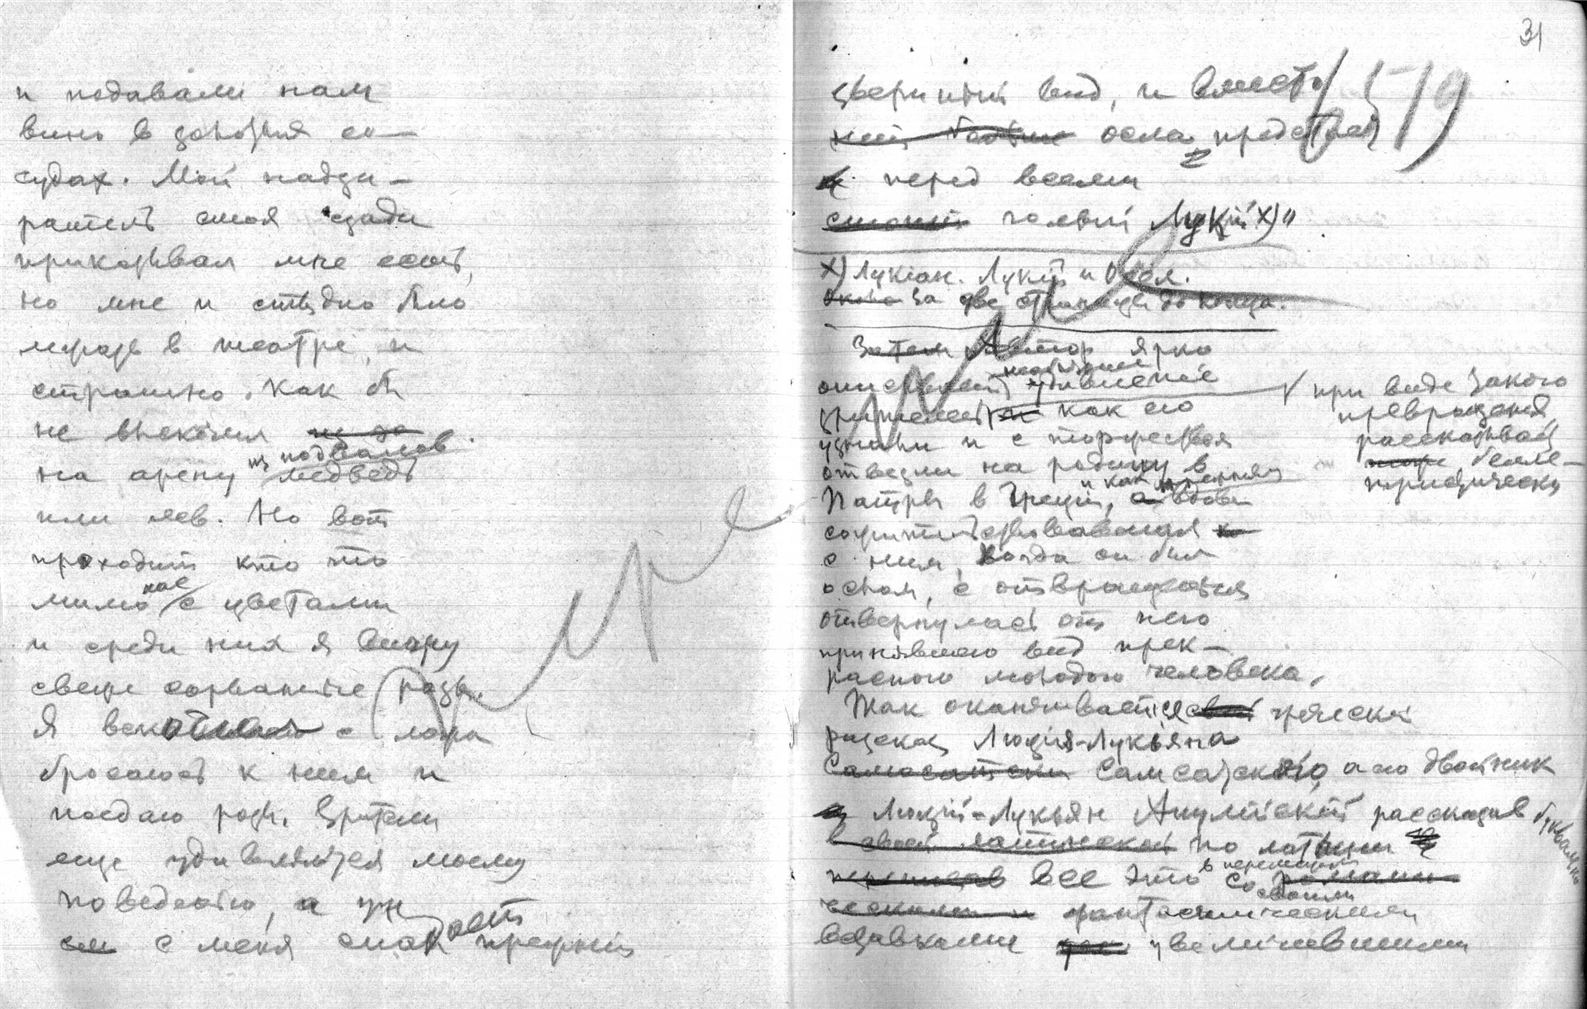 и подавали нам
вино в золотых со-
судах. Мой надзи-
ратель стоя сзади
приказывал мне есть,
но мне и стыдно было
лежать в театре и
страшно. Как бы
не выскочил из за
из подвалов
на арену медведь
или лев. Но вот
проходит кто то
мимо нас с цветами
и среди них я вижу
свеже сорванные розы.
Я с ложа
бросаюсь к ним и
поедаю розы. Зрители
еще удивляются моему
поведению, а уж
с меня спадает прежний
31
519
звериный вид, и вместо
осла предстал
перед всеми
голый Лукий х)"
х) Лукиан. Лукий и Осел.
за две страницы до конца.
Затем автор ярко
описывает удивление
зрителей как его
узнали и с торжеством
отвезли на родину в
Патры в Греции, и как вдова
с ним, когда он был
ослом, с отвращением
отвернулась от него
принявшего вид прек-
расного молодого человека.
√ при виде такого
превращения,
рассказывает
белле-
тристически
Так оканчивается греческий
рассказ Люция-Лукьяна
Самосатского, а его двойник
Люций-Лукьян Апулейский рассказав буквально
по латыни
все это в перемешку со своими
фантастическими
вставками увеличившими